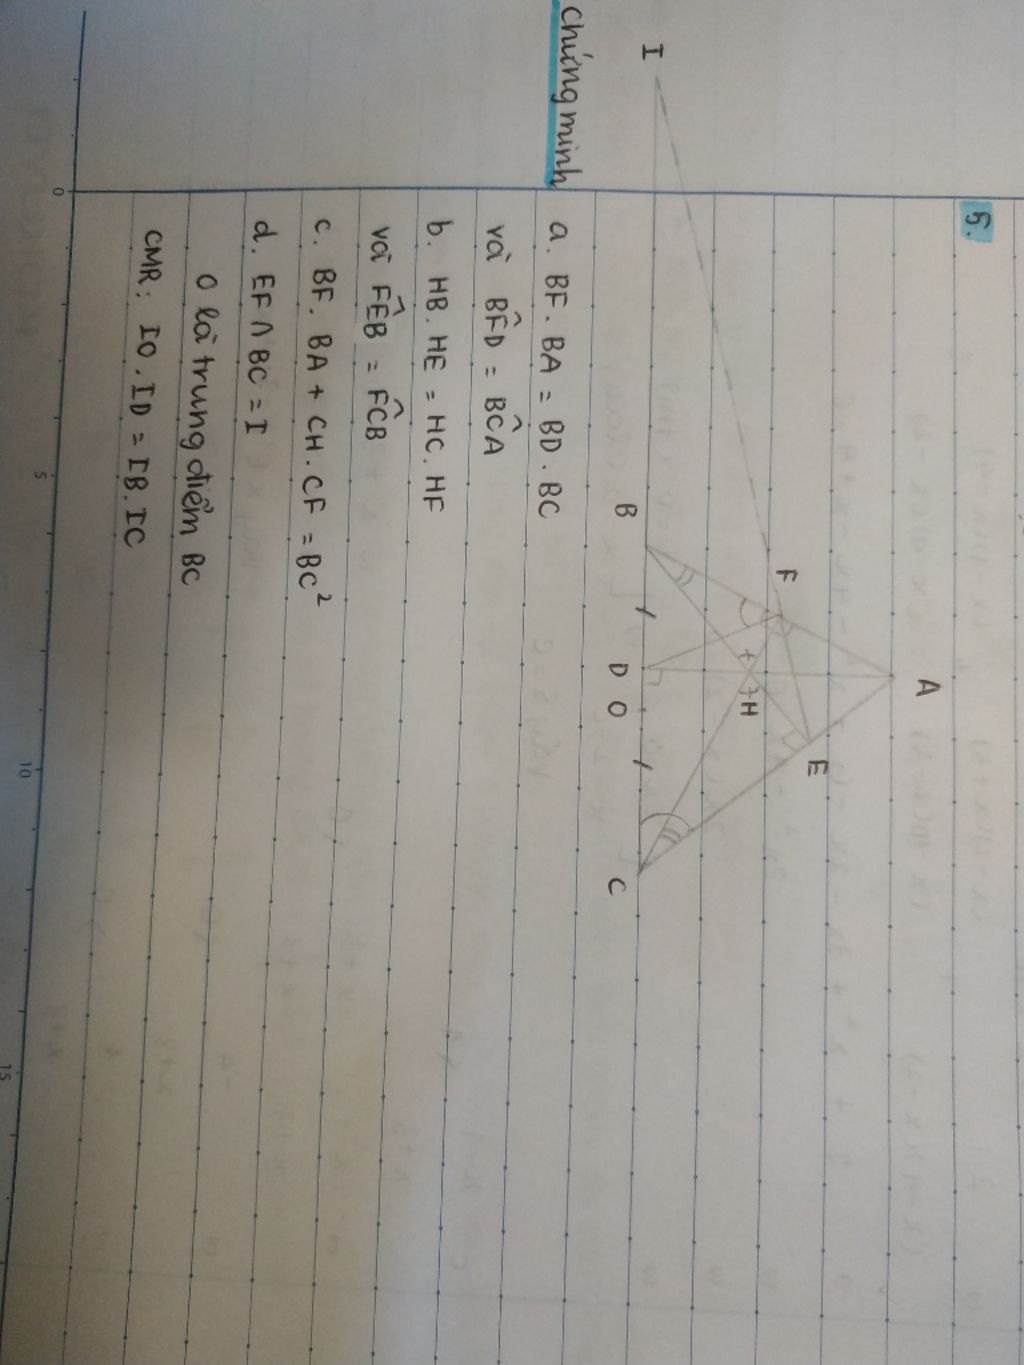 5.
A
F
E
H
I
B
D
O
C
Chứng minh
a. BF. BA = BD. BC
và BF̂D = BĈA
b. HB. HE = HC. HF
và FÊB = FĈB
c. BF. BA + CH. CF = BC²
d. EF ∩ BC = I
O là trung điểm BC
CMR: IO. ID = IB. IC
0
5
10
15